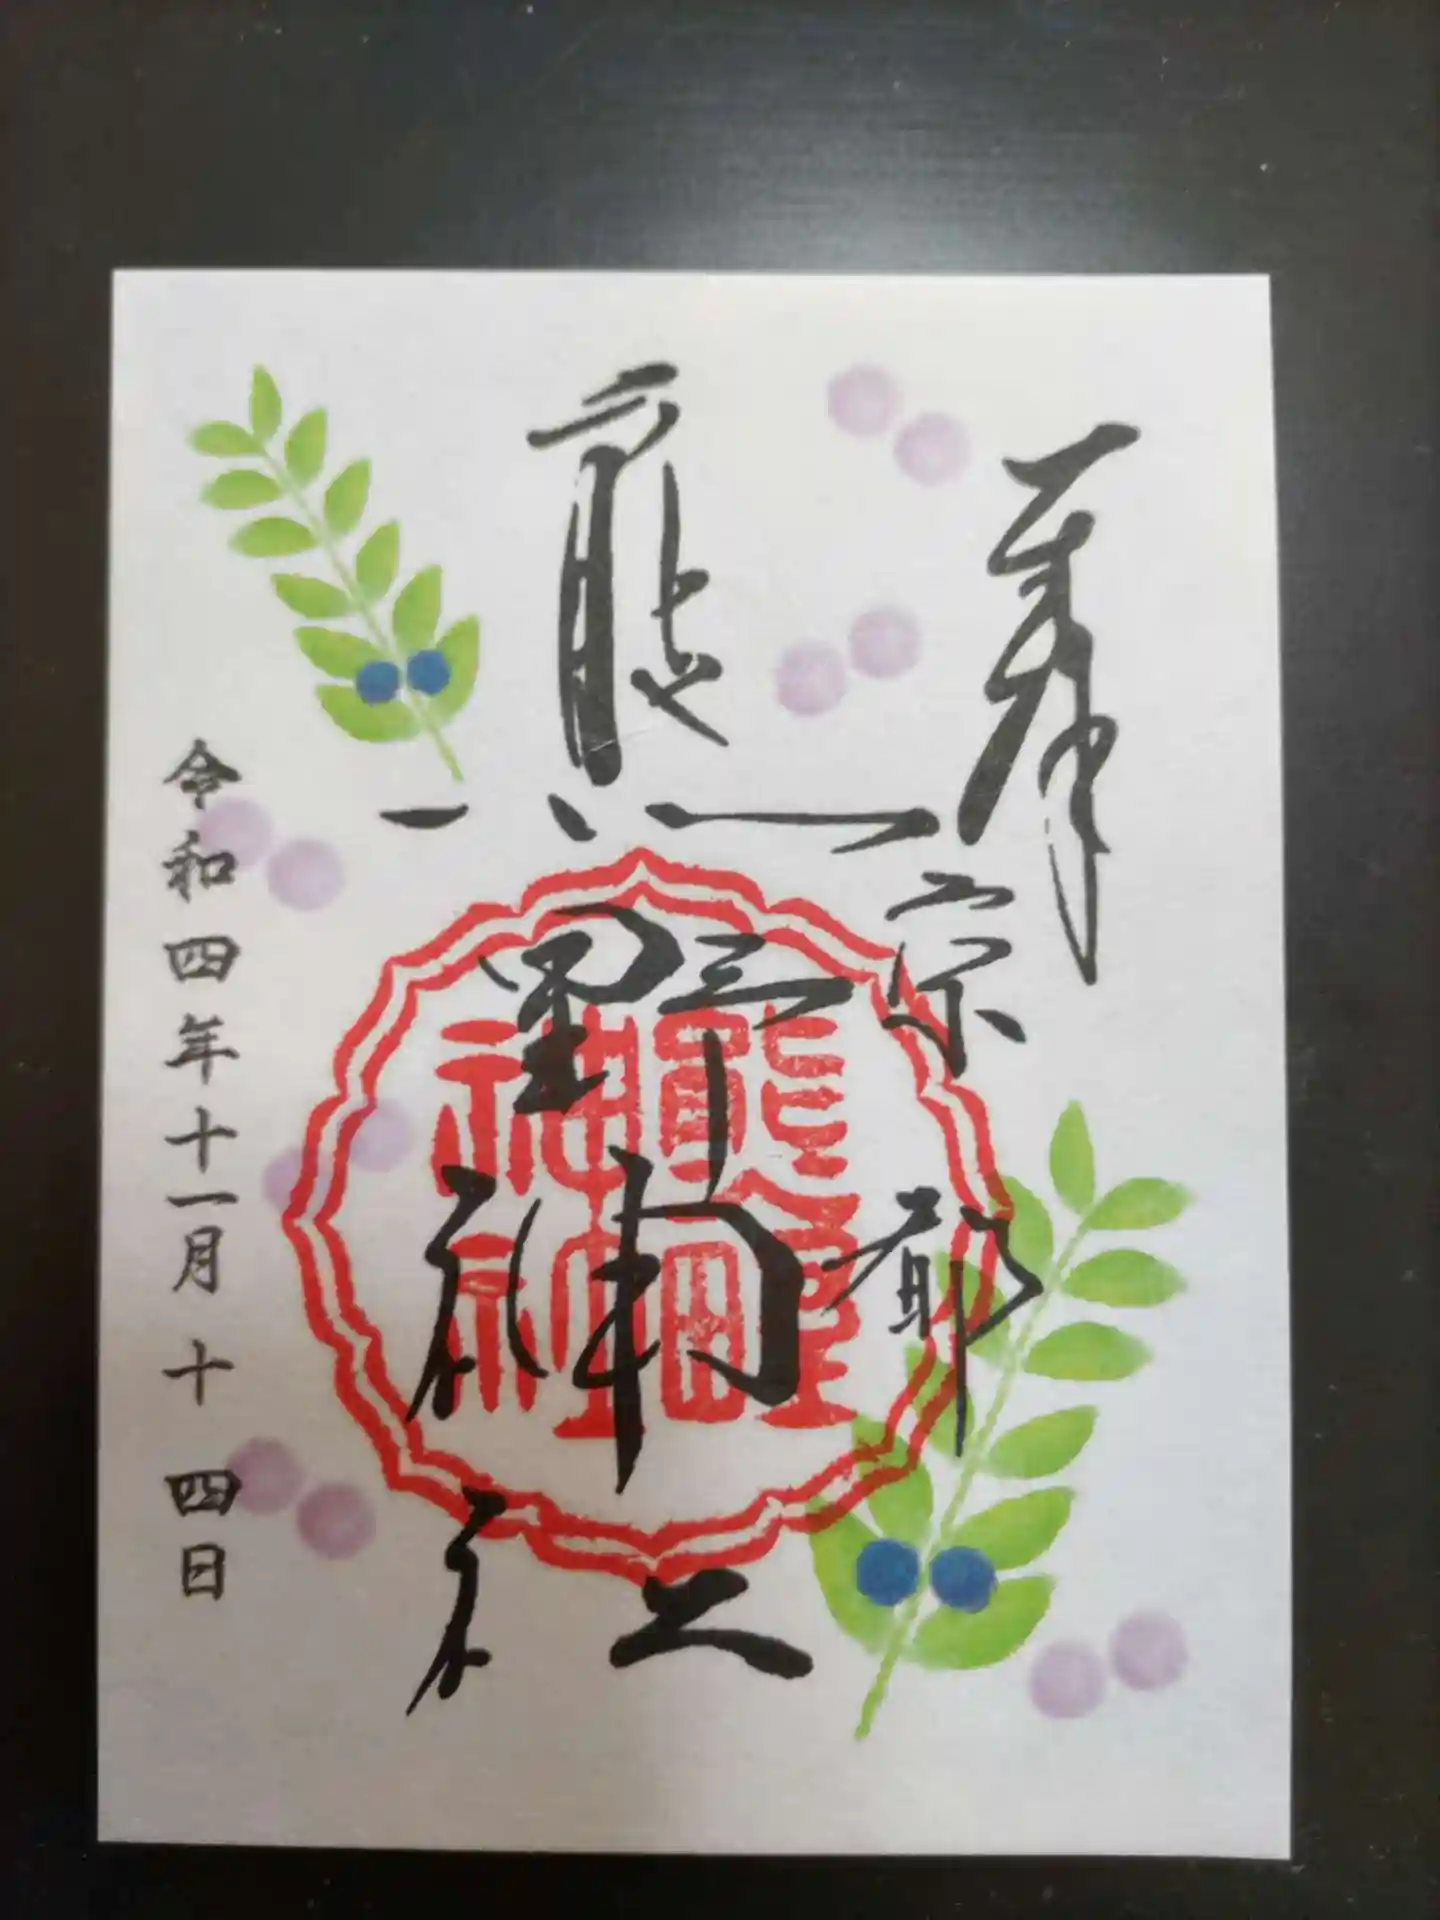 奉拝
京都
熊野神社
熊野神社
令和四年十一月十四日